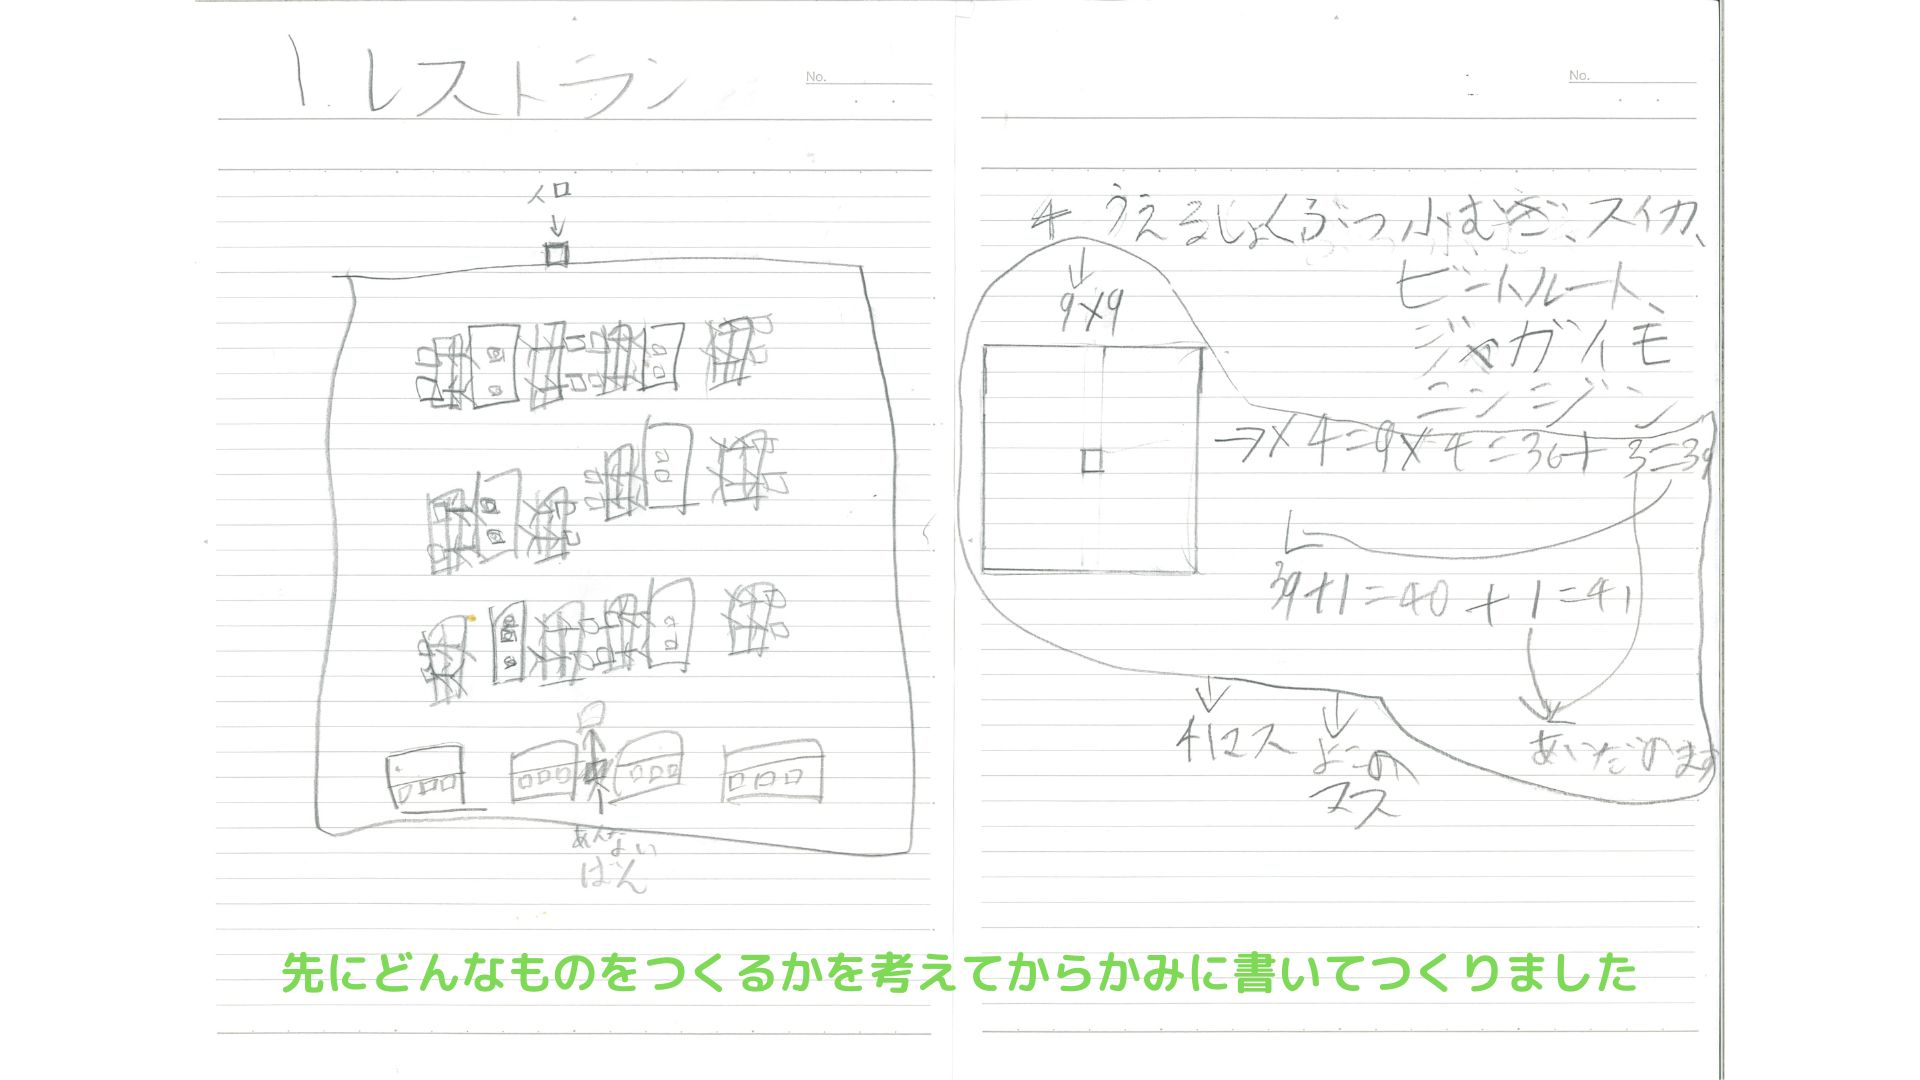 1.レストラン
No.
入口
あんない
ばん
No.
4 うえるしょくぶつ 小むぎ、スイカ、
ビートルート、
ジャガイモ
ニンジン
9×9
→×4=9×4=36+3=39
39+1=40+1=41
41マス
よこの
マス
あいだのます
先にどんなものをつくるかを考えてからかみに書いてつくりました